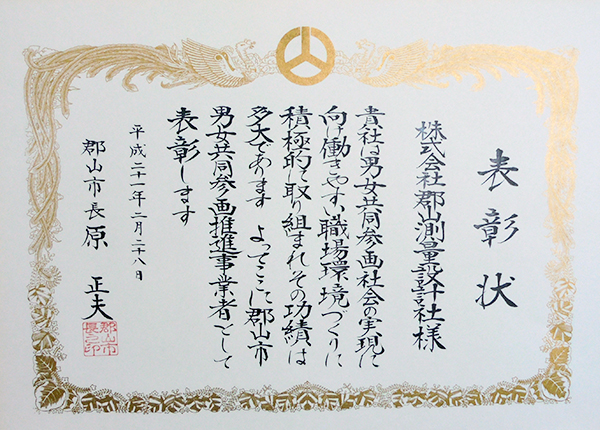 表彰状
株式会社郡山測量設計社様
貴社は男女共同参画社会の実現に
向け働きやすい職場環境づくりに
積極的に取り組まれその功績は
多大であります よってここに郡山市
男女共同参画推進事業者として
表彰します
平成二十一年二月二十八日
郡山市長 原 正夫
郡山市
長之印